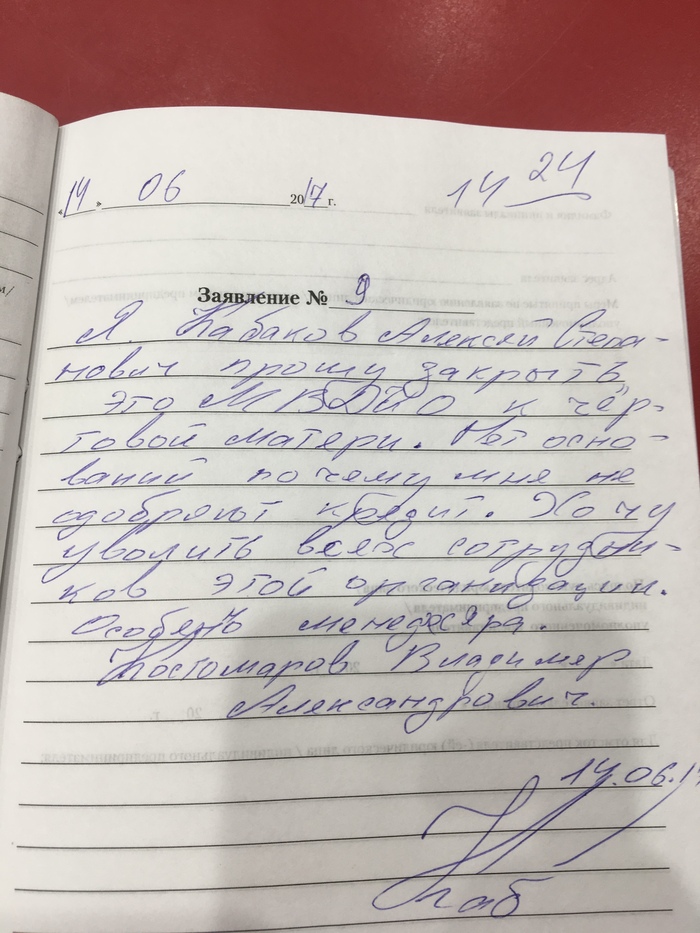 «14» 06 2017 г. 14 24
Заявление № 9
Я. Кабаков Алексей Степа-
нович прошу закрыть
это МВДИО к чёр-
товой матери. Нет осно-
ваний почему мне не
одобряют кредит. Хочу
уволить всех сотрудни-
ков этой организации.
менеджера.
Костомаров Владимер
Александрович.
14.06.17
Каб